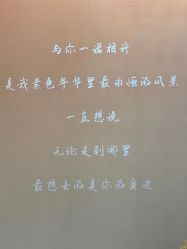 与你一诺相许
是我素色年华里最永恒的风景
一直想说
无论走到哪里
最想去的是你的身边